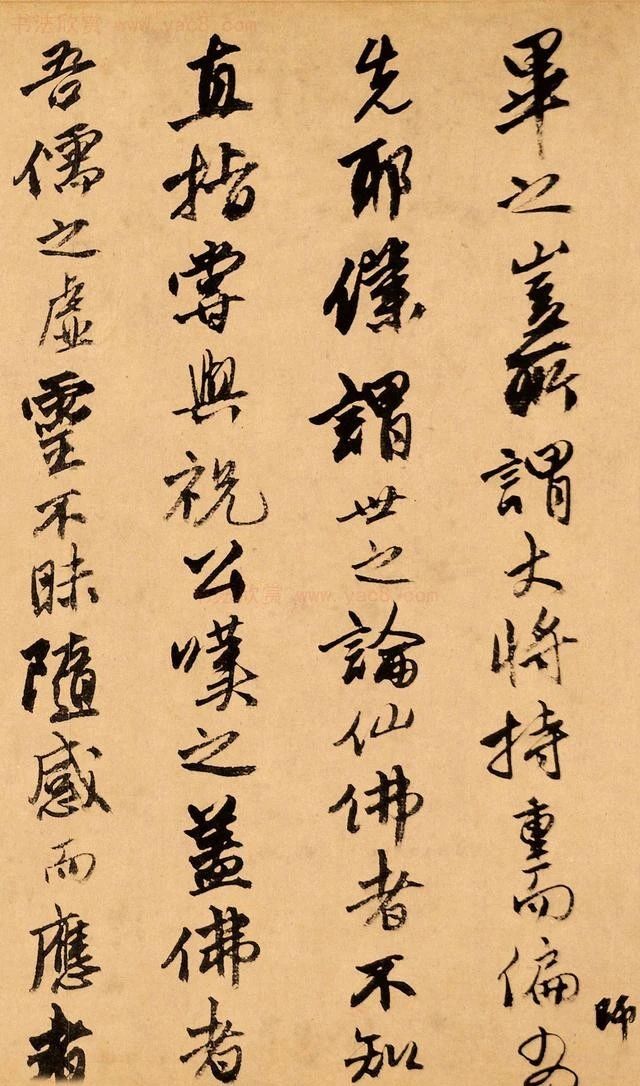 畢之豈所謂大將持重而偏
師
先耶僕謂世之論仙佛者不知
直指嘗與祝公嘆之蓋佛者
吾儒之虛靈不昧隨感而應者
书法欣赏 www.yac8.com
书法欣赏 www.yac8.com